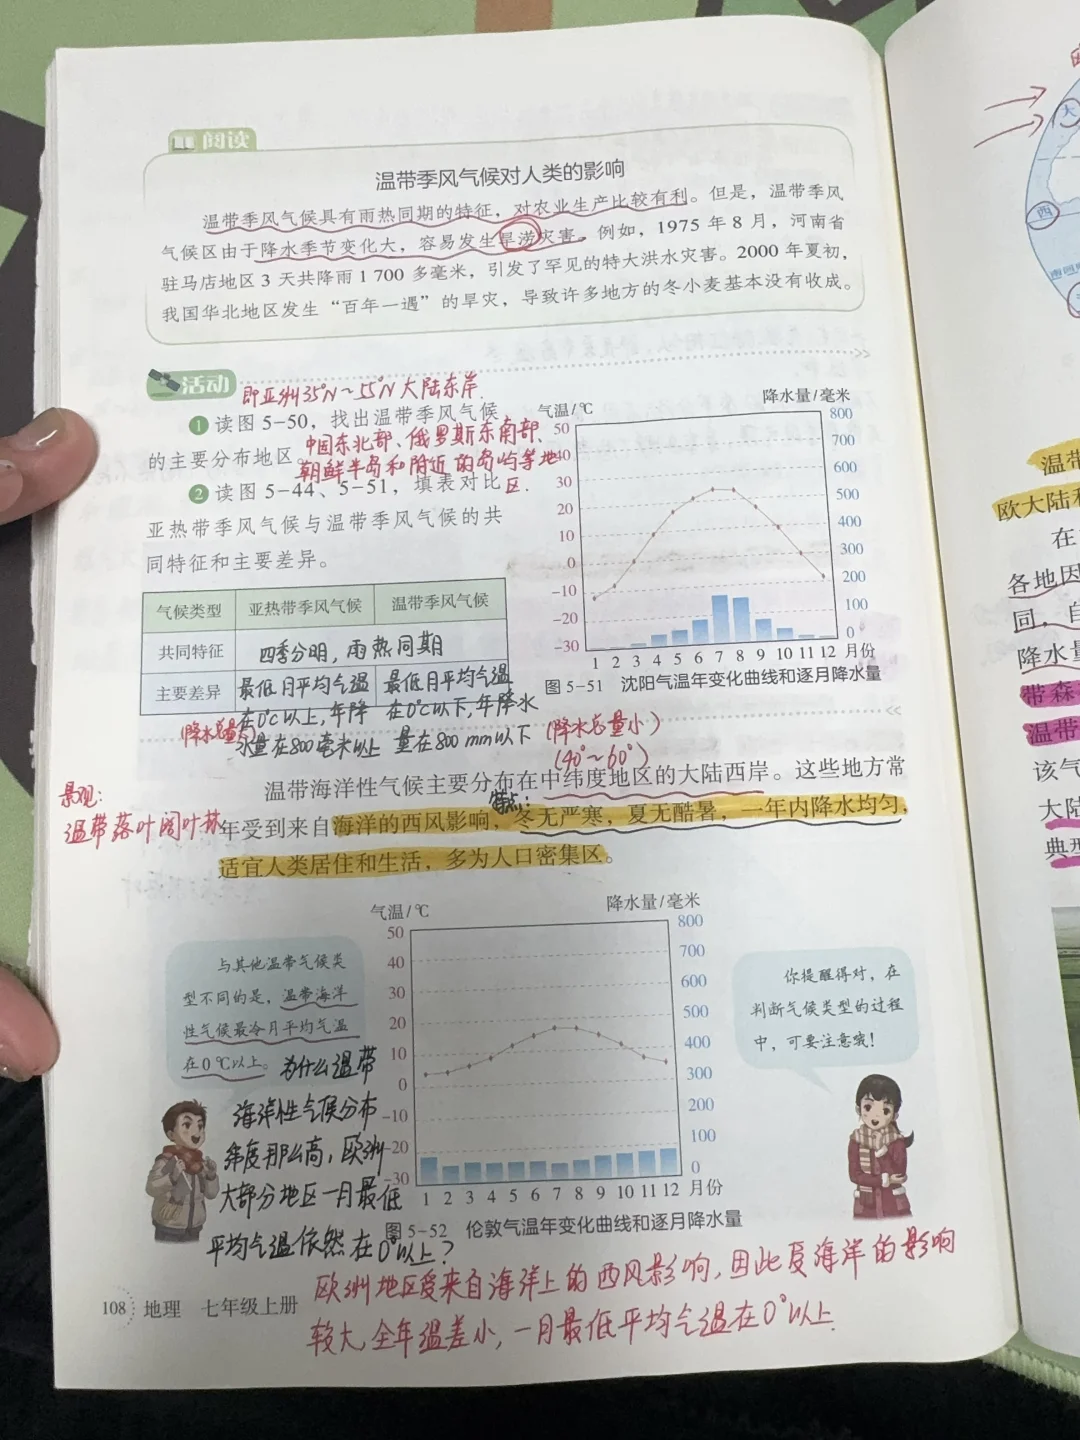 阅读
温带季风气候对人类的影响
温带季风气候具有雨热同期的特征，对农业生产比较有利。但是，温带季风
气候区由于降水季节变化大，容易发生旱涝灾害。例如，1975 年 8 月，河南省
驻马店地区 3 天共降雨 1 700 多毫米，引发了罕见的特大洪水灾害。2000 年夏初，
我国华北地区发生“百年一遇”的旱灾，导致许多地方的冬小麦基本没有收成。
活动
即亚洲35°N～55°N大陆东岸.
1 读图 5-50，找出温带季风气候
的主要分布地区。
中国东北部、俄罗斯东南部、
朝鲜半岛和附近的岛屿等地
区.
2 读图 5-44、5-51，填表对比
亚热带季风气候与温带季风气候的共
同特征和主要差异。
气候类型 亚热带季风气候 温带季风气候
共同特征 四季分明，雨热同期
主要差异 最低月平均气温 最低月平均气温
在0℃以上，年降 在0℃以下，年降水
水量在800毫米以上 量在800mm以下
(降水总量大)
(降水总量小)
气温/℃ 降水量/毫米
50 800
40 700
30 600
20 500
10 400
0 300
-10 200
-20 100
-30 0
1 2 3 4 5 6 7 8 9 10 11 12 月份
图 5-51 沈阳气温年变化曲线和逐月降水量
(40°～60°)
温带海洋性气候主要分布在中纬度地区的大陆西岸。这些地方常
特点：
年受到来自海洋的西风影响，冬无严寒，夏无酷暑，一年内降水均匀，
适宜人类居住和生活，多为人口密集区。
景观：
温带落叶阔叶林
气温/℃ 降水量/毫米
50 800
40 700
30 600
20 500
10 400
0 300
-10 200
-20 100
-30 0
1 2 3 4 5 6 7 8 9 10 11 12 月份
图 5-52 伦敦气温年变化曲线和逐月降水量
与其他温带气候类
型不同的是，温带海洋
性气候最冷月平均气温
在 0 ℃以上。
为什么温带
海洋性气候分布
纬度那么高，欧洲
大部分地区一月最低
平均气温依然在0°以上？
你提醒得对，在
判断气候类型的过程
中，可要注意哦！
欧洲地区受来自海洋上的西风影响，因此受海洋的影响
较大，全年温差小，一月最低平均气温在0°以上.
108 地理 七年级上册
大
西
温带
欧大陆
在
各地因
同，自
降水量
带森
温带
该气
大陆
典型